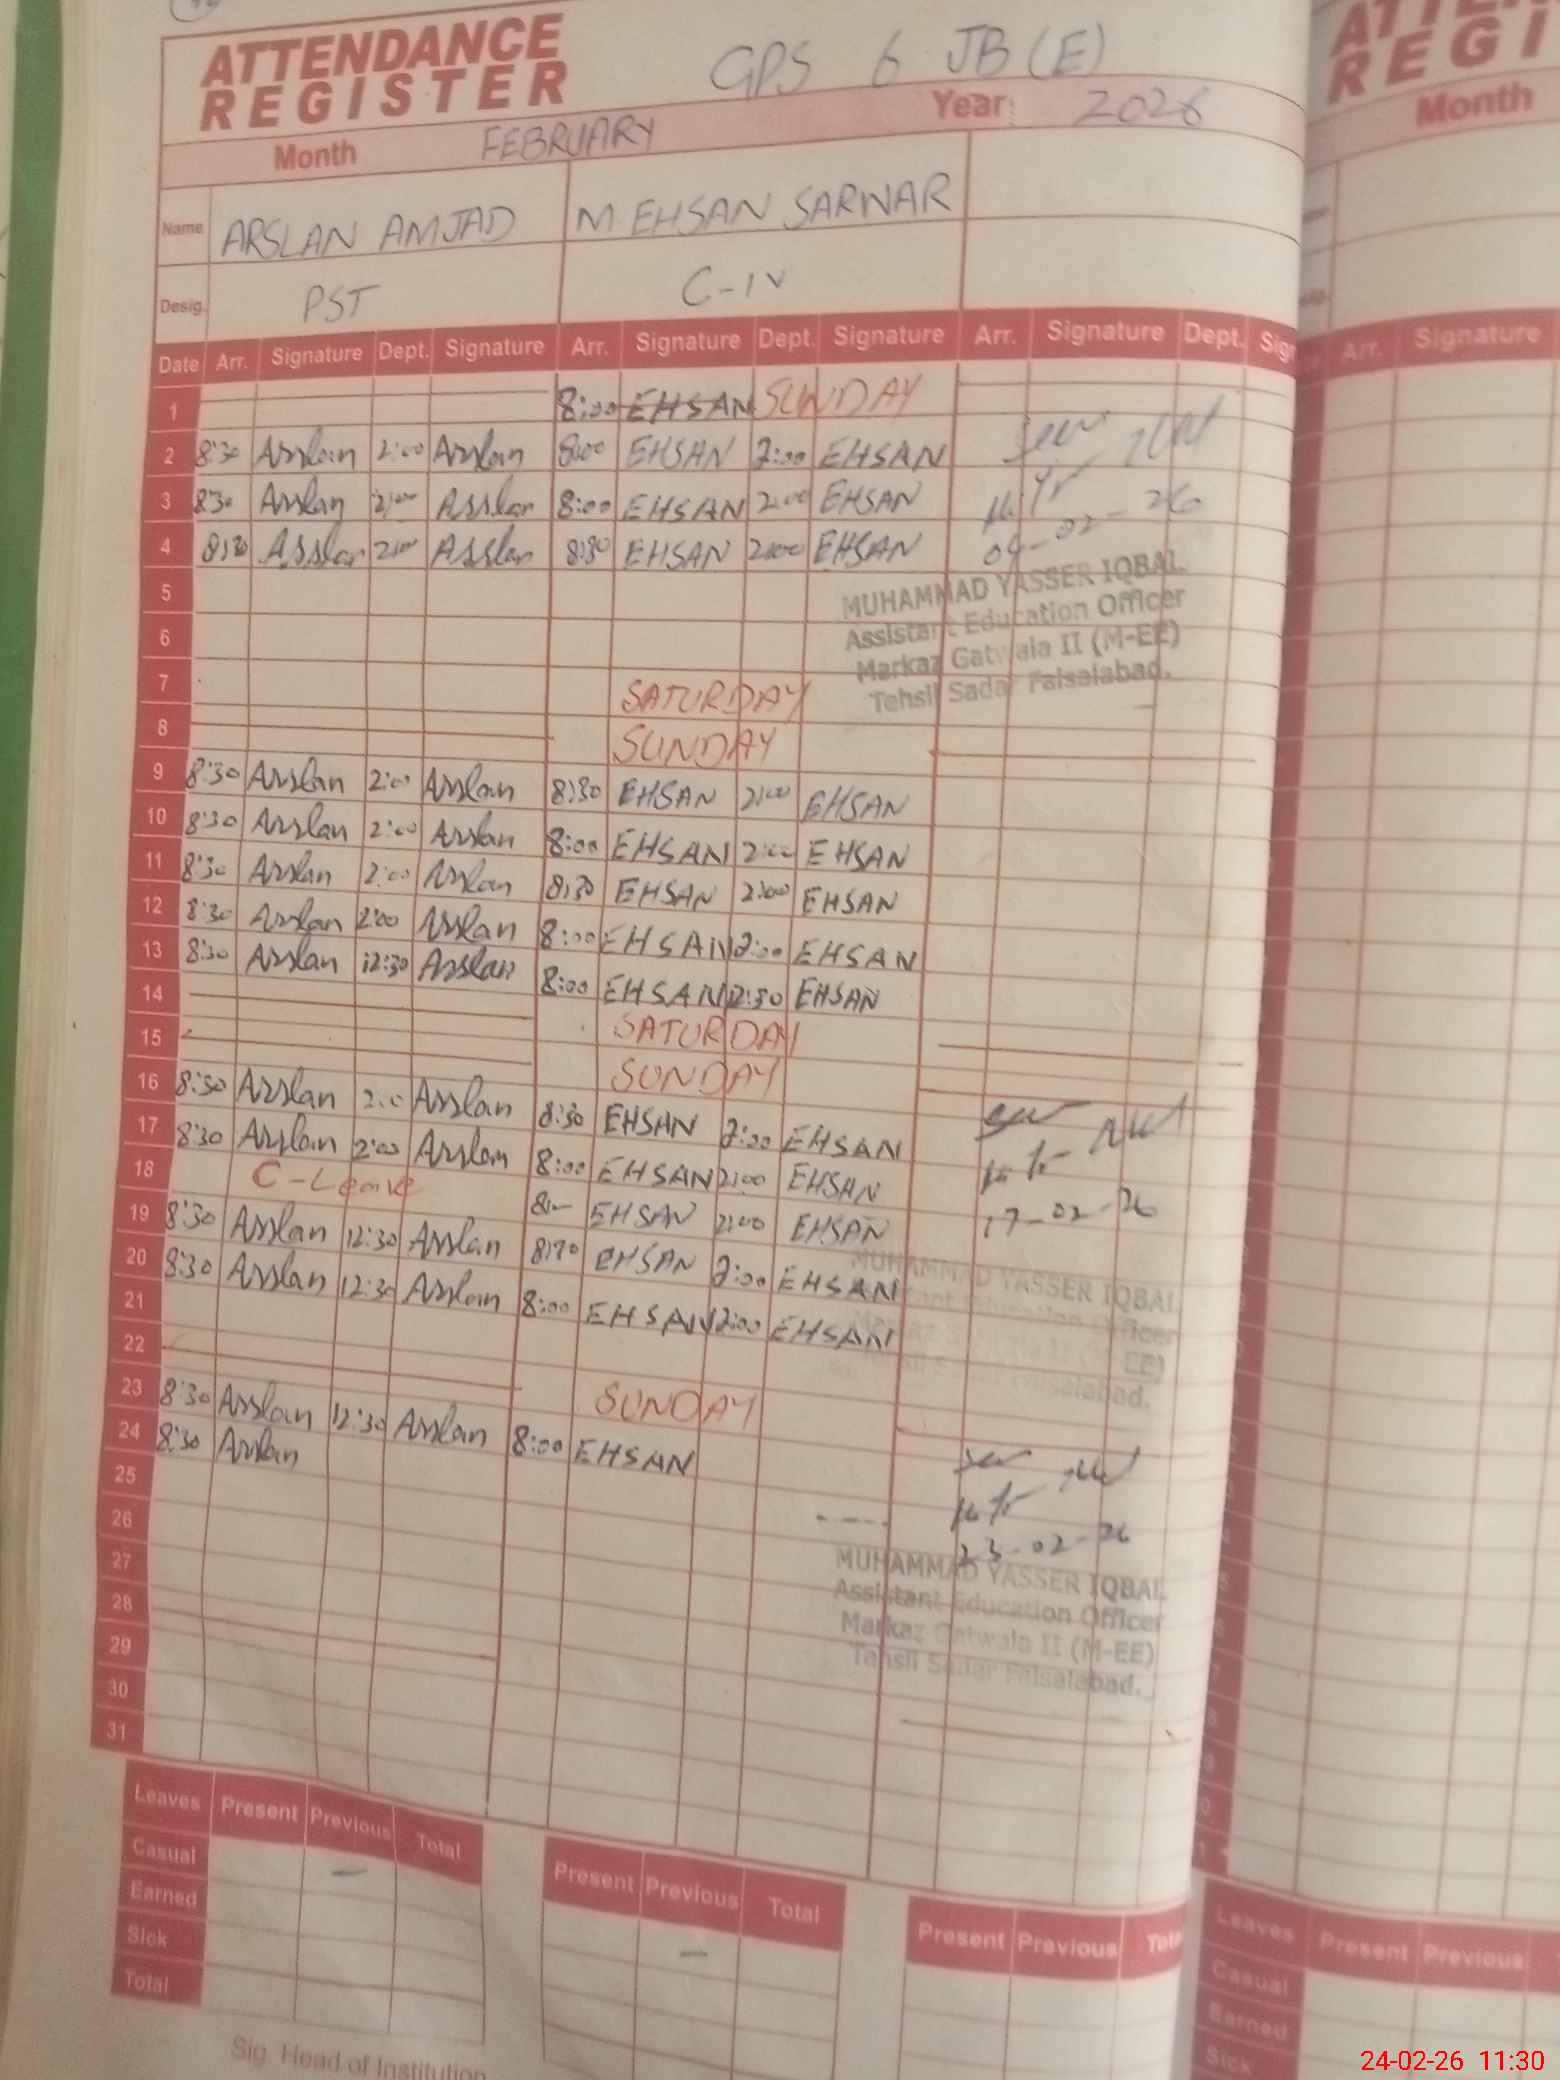 ATTENDANCE
REGISTER
GPS 6 JB (E)
Month FEBRUARY Year: 2026
Name ARSLAN AMJAD M. EHSAN SARWAR
Desig. PST C-IV
Date Arr. Signature Dept. Signature Arr. Signature Dept. Signature Arr. Signature Dept.
1 8:00 EHSAN SUNDAY
2 8:30 Arslan 2:00 Arslan 8:00 EHSAN 2:00 EHSAN
3 8:30 Arslan 2:00 Arslan 8:00 EHSAN 2:00 EHSAN
4 8:30 Arslan 2:00 Arslan 8:30 EHSAN 2:00 EHSAN
04-02-26
MUHAMMAD YASSER IQBAL
Assistant Education Officer
Markaz Gatwala II (M-EE)
Tehsil Sadar Faisalabad.
5
6
7 SATURDAY
8 SUNDAY
9 8:30 Arslan 2:00 Arslan 8:30 EHSAN 2:00 EHSAN
10 8:30 Arslan 2:00 Arslan 8:00 EHSAN 2:00 EHSAN
11 8:30 Arslan 2:00 Arslan 8:30 EHSAN 2:00 EHSAN
12 8:30 Arslan 2:00 Arslan 8:00 EHSAN 2:00 EHSAN
13 8:30 Arslan 12:30 Arslan 8:00 EHSAN 12:30 EHSAN
14 SATURDAY
15 SUNDAY
16 8:30 Arslan 2:0 Arslan 8:30 EHSAN 2:00 EHSAN
17 8:30 Arslan 2:00 Arslan 8:00 EHSAN 2:00 EHSAN
18 C-Leave EHSAN 2:00 EHSAN
17-02-26
19 8:30 Arslan 12:30 Arslan EHSAN 2:00 EHSAN
20 8:30 Arslan 12:30 Arslan 8:00 EHSAN 2:00 EHSAN
MUHAMMAD YASSER IQBAL
21
22 SUNDAY
23 8:30 Arslan 12:30 Arslan 8:00 EHSAN
24 8:30 Arslan
25
26
23-02-26
MUHAMMAD YASSER IQBAL
Assistant Education Officer
Markaz Gatwala II (M-EE)
Tehsil Sadar Faisalabad.
27
28
29
30
31
Leaves Present Previous Total Present Previous Total Present Previous
Casual
Earned
Sick
Total
Sig. Head of Institution
Month
Arr. Signature
Leaves Present Previous
Casual
Earned
Sick
24-02-26 11:30